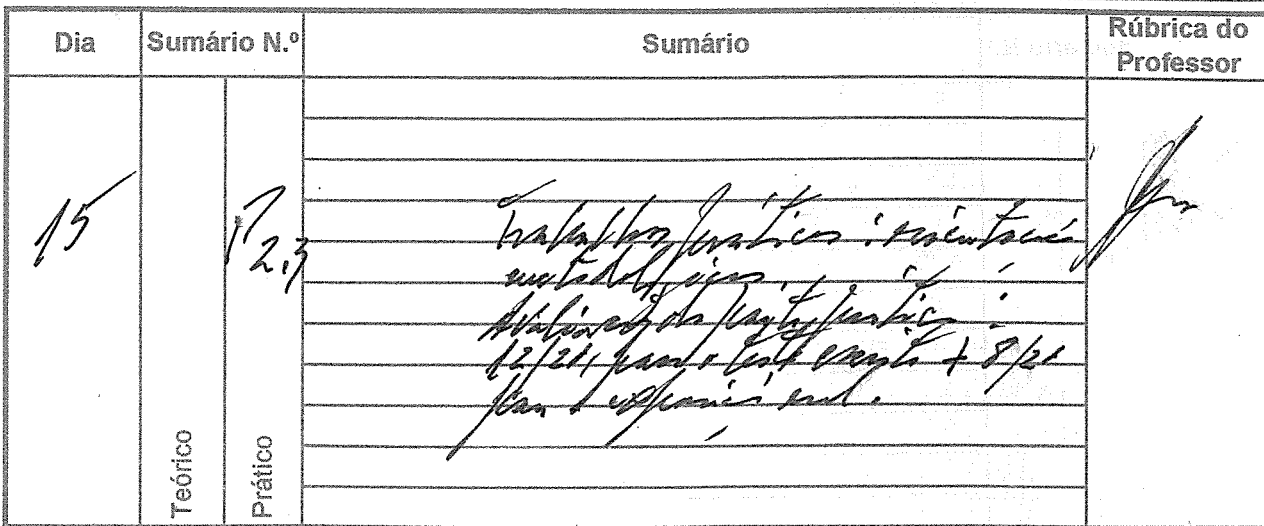 Dia
Sumário N.º
Sumário
Rúbrica do
Professor
15
P
2,3
Trabalhos práticos: orientações
metodológicas.
Avaliação da parte prática:
12/20 para o teste escrito + 8/20
para a exposição oral.
Teórico
Prático